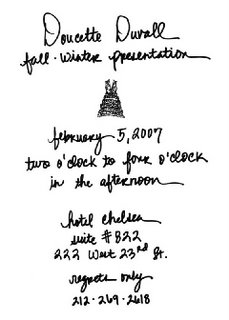 Doucette Duvall
fall-winter presentation
february 5, 2007
two o'clock to four o'clock
in the afternoon
hotel chelsea
suite #822
222 West 23rd St.
regrets only
212-269-2618